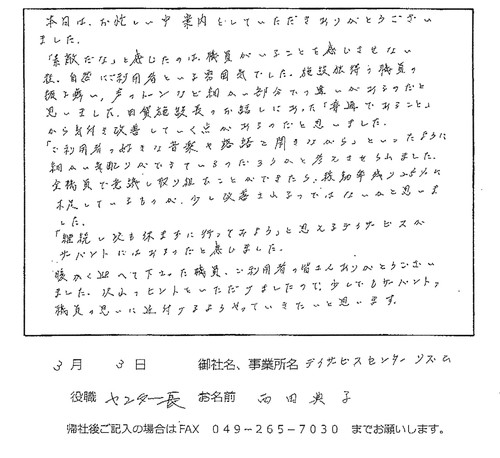 本日は、お忙しい中案内をしていただきありがとうござい
ました。
「素敵だな」と感じたのは、職員がいることを感じさせない
程、自然にご利用者といる雰囲気でした。施設依持う職員の
振る舞い、声のトーンなど細かい部分で違いがあるのだと
思いました。日質施設長のお話しにあった「普通であること」
から気付き改善していく点があるのだと思いました。
「ご利用者の好きな音楽や落語を聞きながら」といったように
細かい気配りができているのだろうかと考えさせられました。
全職員で意識し取り組むことができたら、稼動率残り25%に
不足しているものが、少し改善されるのではないかと思いま
した。
「継続し次も休まずに行ってみよう」と思えるデイサービスが
サバントにはあるのだと感じました。
暖かく迎へて下さった職員、ご利用者の皆さんありがとうござい
ました。沢山のヒントをいただけましたので、少しでもサバントの
職員の思いに近付けるようやっていきたいと思います。
3月 3日 御社名、事業所名 デイサービスセンター リズム
役職 センター長 お名前 西田 子
帰社後ご記入の場合はFAX 049-265-7030 までお願いします。